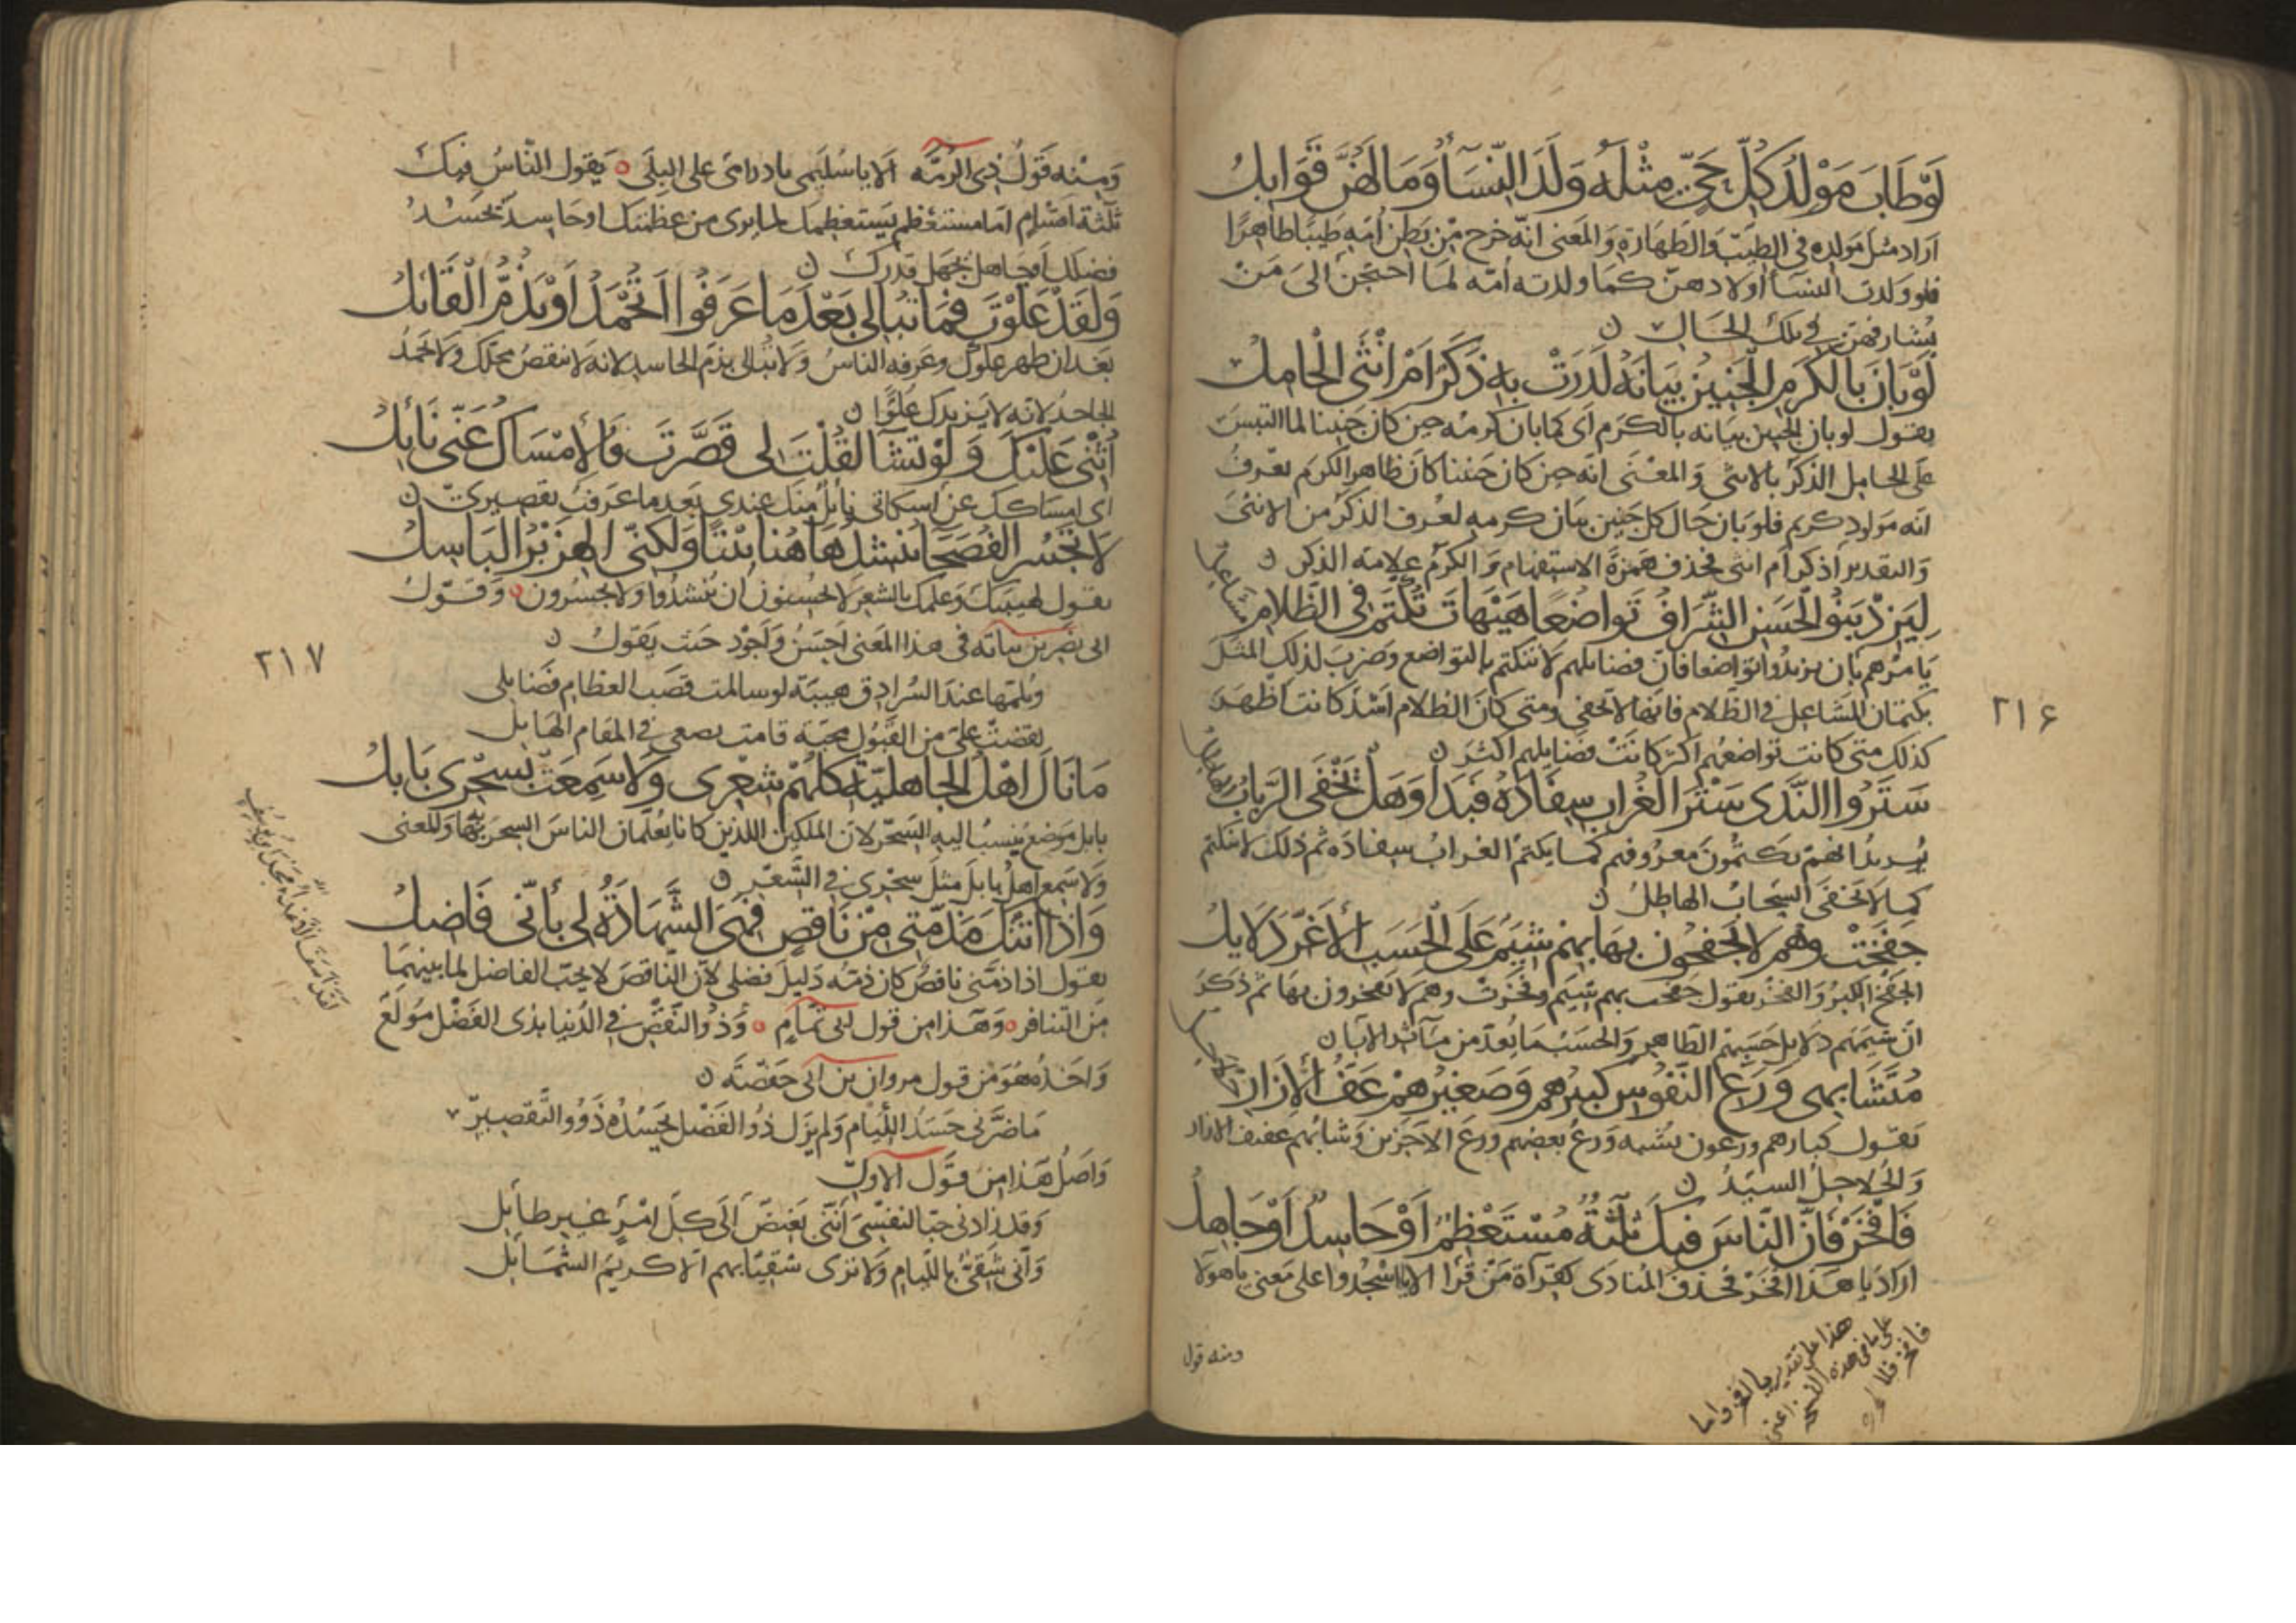 لَوْ طَابَ مَوْلِدُ كُلِّ حَيٍّ مِثْلَهُ وَلَدَ النِّسَاءُ وَمَا لَهُنَّ قَوَابِلُ
اراد مثل مولده فى الطيب والطهارة والمعنى انه خرج من بطن امه طيبا طاهرا
فلو ولدت النساء اولادهن كما ولدته امه لما احتجن الى من
يشارفهن فى تلك الحال ن
لَوْ بَانَ بِالْكَرَمِ الْجَنِينُ بَيَانَهُ لَدَرَتْ بِهِ ذَكَرٌ اَمْ انْثَى الْحَامِلُ
يقول لو بان الجنين بيانه بالكرم اى كما بان كرمه حين كان جنينا لما التبس
على الحامل الذكر بالانثى والمعنى انه حين كان جنينا كان ظاهر الكرم يعرف
انه مولود كريم فلو بان حال كل جنين بيان كرمه لعرف الذكر من الانثى
والتقدير أذكر أم انثى فحذف همزة الاستفهام والكرم علامة الذكر ن
لِيَزِدْ بَنُو الْحَسَنِ الشِّرَافُ تَوَاضُعًا هَيْهَاتَ تُكْتَمُ فِى الظَّلامِ مشاعل
يامرهم بان يزيدوا تواضعا فان فضائلهم لا تنكتم بالتواضع وضرب لذلك المثل
بكتمان المشاعل فى الظلام فانها لا تخفى ومتى كان الظلام اشد كانت اظهر
كذلك متى كانت تواضعهم اكثر كانت فضايلهم اكثر ن
٢١۶
سَتَرُوا النَّدَى سَتْرَ الْغُرَابِ سِفَادَهُ فَبَدَا وَهَلْ يَخْفَى الرَّبَابُ الهاطل
يريد انهم يكتمون معروفهم كما يكتم الغراب سفاده ثم ذلك لا ينكتم
كما لا تخفى السحاب الهاطل ن
جَفَخَتْ وَهُمْ لا يَجْفَخُونَ بِهَا بِهِمْ شِيَمٌ عَلَى الْحَسَبِ الأَغَرِّ دَلايِلُ
الجفخ الكبر والفخر يقول جفخت بهم شيم وفخرت وهم لا يفخرون بها ثم ذكر
ان شيمهم دلايل حسبهم الظاهر والحسب ما يعد من مآثر الآبا ن
مُتَشَابِهِى وَرَعِ النُّفُوسِ كَبِيرُهُمْ وَصَغِيرُهُمْ عَفُّ الإزَارِ
يقول كبارهم ورعون يشبه ورع بعضهم ورع الآخرين وشابهم عفيف الازار
والحلاحل السيد ن
فَافْخَرْ فَاِنَّ النَّاسَ فِيكَ ثَلثَةٌ مُسْتَعْظِمٌ اَوْ حَاسِدٌ اَوْ جَاهِلُ
اراد يا هذا افخر فحذف المنادى كقرآة من قرأ الا يا اسجدوا على معنى يا هولا
هذا على تقدير يا افخر واما
على ما فى هذه النسخة اعنى
فافخر فلا
ومنه قول
ومنه قول ذى الرمّه الا يا اسلمى يا دار مى على البلى ٥ يقول الناس فيك
ثلثة اقسام اما مستعظم يستعظمك لما يرى من عظمتك او حاسد يحسد
فضلك او جاهل يجهل قدرك ن
وَلَقَدْ عَلَوْتَ فَمَا تُبَالِى بَعْدَ مَا عَرَفُوا اَيُحْمَدُ اَوْ يَذُمُّ الْقَائِلُ
بعد ان ظهر علوك وعرفه الناس ولا تبالى بذم الحاسد لانه لا ينقص محلك ولا بحمد
الجاحد لانه لا يزيدك علوّا ن
اُثْنِى عَلَيْكَ وَلَوْ تَشَاء لَقُلْتَ لِى قَصَّرْتَ فَالْإمْسَاكُ عَنِّى نَائِلُ
اى امساكك عن اسكاتى نائل منك عندى بعد ما عرفت تقصيرى ن
لا تَجْسُرُ الْفُصَحَاءُ تُنْشِدُ هَاهُنَا بَيْتًا وَلَكِنِّى الْهِزَبْرُ الْبَاسِلُ
يقول لهيبتك وعلمك بالشعر لا يحسنون ان ينشدوا ولا يجسرون ٥ وقول
ابى نصر بن نباته فى هذا المعنى احسن واجود حيث يقول ن
٢١٧
ويلمها عند السرادق هيبة لو سالمت قصب العظام فضايلى
نفضت على من القبول محبة قامت بضبعى فى المقام الهايل
مَا نَالَ اَهْلُ الْجَاهِلِيَّةِ كُلُّهُمْ شِعْرِى وَلا سَمِعَتْ بِسِحْرِى بَابِلُ
بابل موضع ينسب اليه السحر لان الملكين اللذين كانا يعلمان الناس السحر بها والمعنى
ولا سمع اهل بابل مثل سحرى فى الشعر ن
وَاِذَا اَتَتْكَ مَذَمَّتِى مِنْ نَاقِصٍ فَهِىَ الشَّهَادَةُ لِى بِأَنِّى فَاضِلُ
يقول اذا ذمّنى ناقص كان ذمّه دليل فضلى لان الناقص لا يحب الفاضل لما بينهما
من التنافر ٥ وهذا من قول ابى تمام ٥ وذو النقص فى الدنيا بذى الفضل مولع
واخذه هو من قول مروان بن ابى حفصه ن
ما ضرنى حسد اللئام ولم يزل ذو الفضل يحسده ذوو التقصير
واصل هذا من قول الاول
وقد زادنى حبا لنفسى أننى بغيض الى كل امرئ غير طائل
وانى شقى باللئام ولا ترى شقيا بهم الا كريم الشمائل